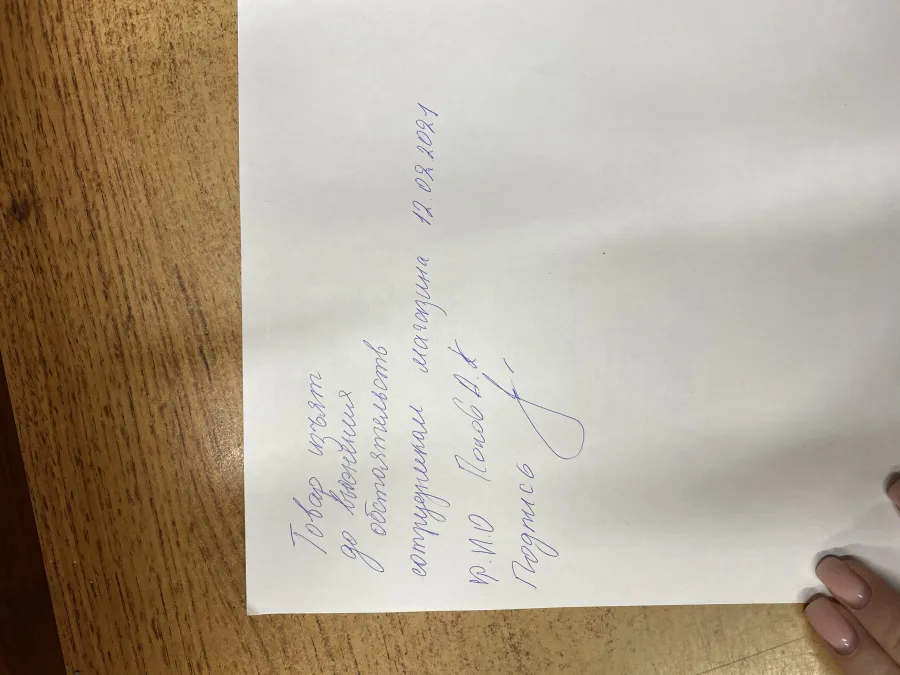 Товар изъят
до выянения
обстоятельств
сотрудникам магазина 12.02.2021
Ф.И.О Попов А.А
Подпись